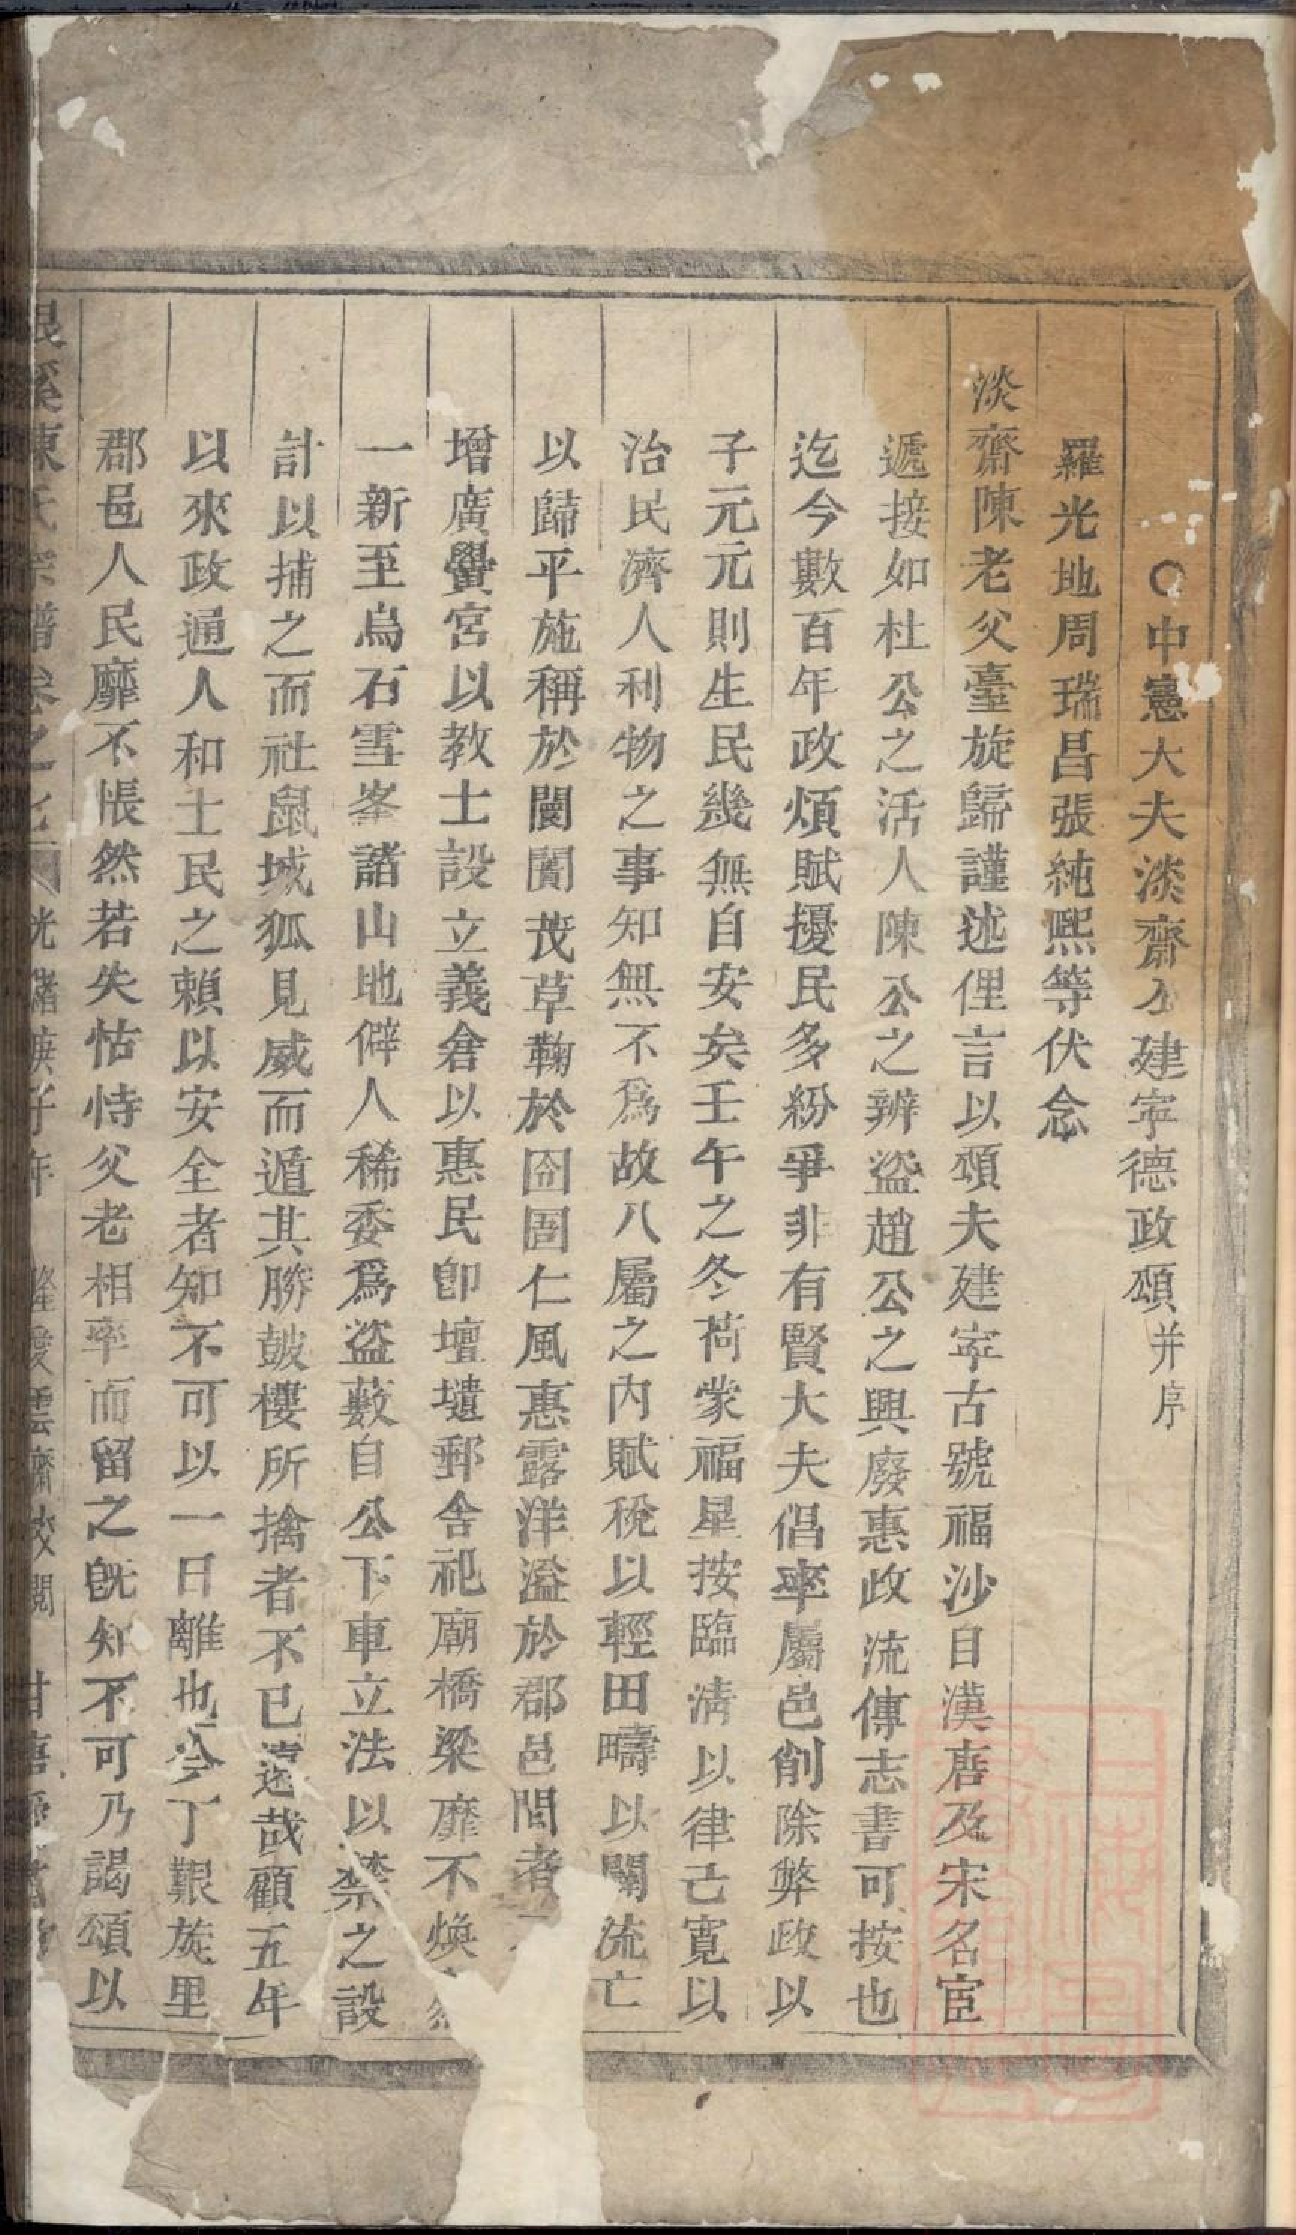 ○中憲大夫淡齋公建寧德政頌并序
羅光地周瑞昌張純熙等伏念
淡齋陳老父臺旋歸謹述俚言以頌夫建寧古號福沙自漢唐及宋名宦
遞接如杜公之活人陳公之辨盜趙公之興廢惠政流傳志書可按也
迄今數百年政煩賦擾民多紛爭非有賢大夫倡率屬邑削除弊政以
子元元則生民幾無自安矣壬午之冬荷蒙福星按臨清以律己寬以
治民濟人利物之事知無不爲故八屬之內賦稅以輕田疇以闢流亡
以歸平施稱於闤闠茂草鞠於囹圄仁風惠露洋溢於郡邑間者
增廣黌宮以教士設立義倉以惠民卽壇壝郵舍祀廟橋梁靡不煥
一新至烏石雪峯諸山地僻人稀委爲盜藪自公下車立法以禁之設
計以捕之而社鼠城狐見威而遁其勝鼓樓所擒者不已遠哉顧五年
以來政通人和士民之賴以安全者知不可以一日離也今丁艱旋里
郡邑人民靡不悵然若失怙恃父老相率而留之旣知不可乃謁頌以
溪陳氏宗譜卷之七 光緒庚子年 愛雲齋校閱